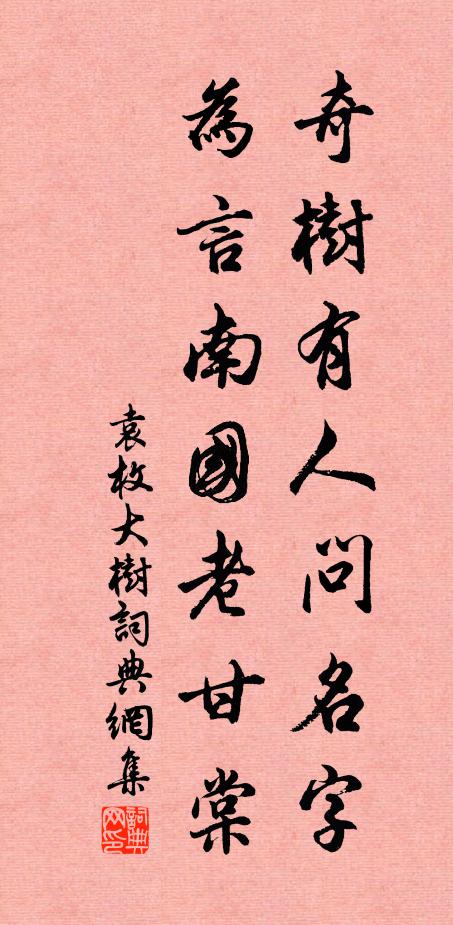 奇樹有人問名字
為言南國老甘棠
袁枚大樹詞典網集
詞典网印